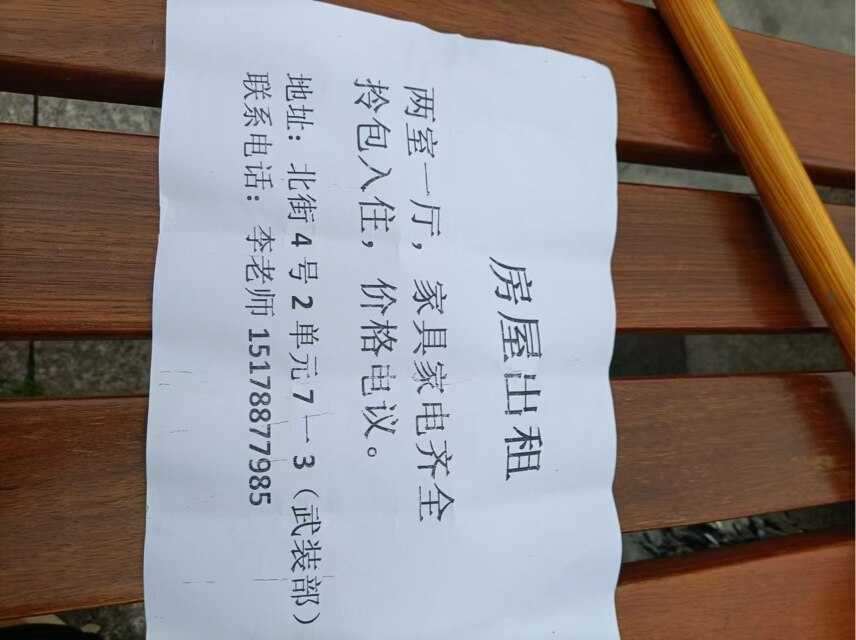 房屋出租
两室一厅，家具家电齐全
拎包入住，价格电议。
地址：北街4号2单元7一3（武装部）
联系电话：李老师15178877985